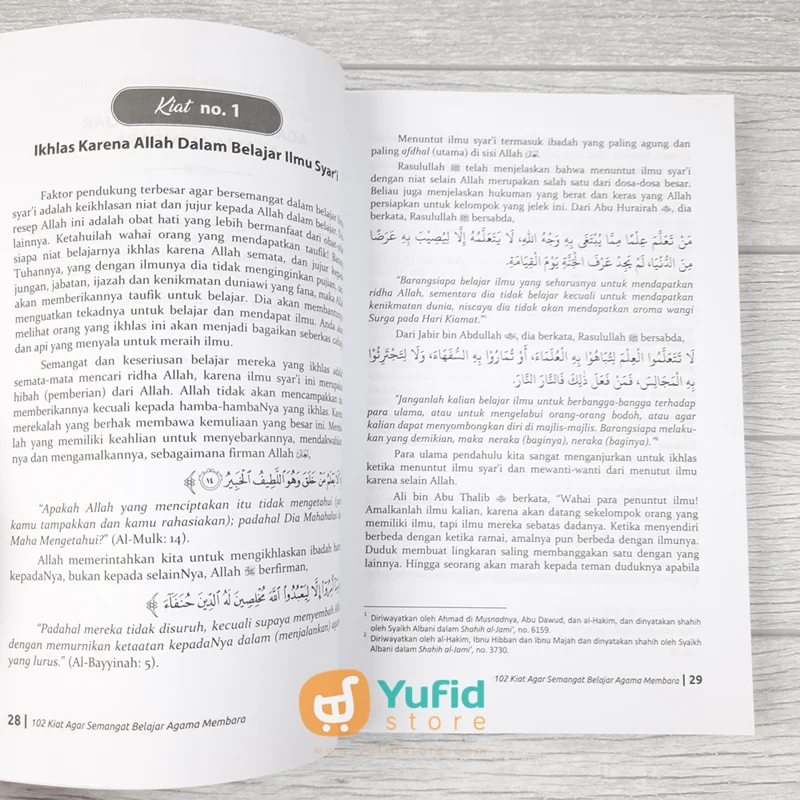 Kiat no. 1
Ikhlas Karena Allah Dalam Belajar Ilmu Syar'i
Faktor pendukung terbesar agar bersemangat dalam belajar ilmu
syar'i adalah keikhlasan niat dan jujur kepada Allah dalam belajar.
resep Allah ini adalah obat hati yang lebih bermanfaat dari
lainnya. Ketahuilah wahai orang yang mendapatkan taufik!
siapa niat belajarnya ikhlas karena Allah semata, dan jujur
Tuhannya, yang dengan ilmunya dia tidak menginginkan
jungan, jabatan, ijazah dan kenikmatan duniawi yang fana, maka
akan memberikannya taufik untuk belajar. Dia akan
menguatkan tekadnya untuk belajar dan mendapat ilmu. Anda
melihat orang yang ikhlas ini akan menjadi bagaikan seberkas
dan api yang menyala untuk meraih ilmu.
Semangat dan keseriusan belajar mereka yang ikhlas
semata-mata mencari ridha Allah, karena ilmu syar'i ini
hibah (pemberian) dari Allah. Allah tidak akan mencampakkan
memberikannya kecuali kepada hamba-hambaNya yang ikhlas.
merekalah yang berhak membawa kemuliaan yang besar ini.
lah yang memiliki keahlian untuk menyebarkannya,
nya dan mengamalkannya, sebagaimana firman Allah ﷻ,
يَعْلَمُ مَنْ خَلَقَ وَهُوَ اللَّطِيفُ الْخَبِيرُ ١٤
“Apakah Allah yang menciptakan itu tidak mengetahui
kamu tampakkan dan kamu rahasiakan); padahal Dia
Maha Mengetahui?” (Al-Mulk: 14).
Allah memerintahkan kita untuk mengikhlaskan ibadah
kepadaNya, bukan kepada selainNya, Allah ﷻ berfirman,
إِلَّا لِيَعْبُدُوا اللَّهَ مُخْلِصِينَ لَهُ الدِّينَ حُنَفَاءَ
“Padahal mereka tidak disuruh, kecuali supaya menyembah
dengan memurnikan ketaatan kepadaNya dalam (menjalankan)
yang lurus.” (Al-Bayyinah: 5).
28 | 102 Kiat Agar Semangat Belajar Agama Membara
Menuntut ilmu syar'i termasuk ibadah yang paling agung dan
paling afdhal (utama) di sisi Allah ﷻ.
Rasulullah ﷺ telah menjelaskan bahwa menuntut ilmu syar'i
dengan niat selain Allah merupakan salah satu dari dosa-dosa besar.
Beliau juga menjelaskan hukuman yang berat dan keras yang Allah
persiapkan untuk kelompok yang jelek ini. Dari Abu Hurairah, dia
berkata, Rasulullah ﷺ bersabda,
مَنْ تَعَلَّمَ عِلْمًا مِمَّا يُبْتَغَى بِهِ وَجْهُ اللهِ، لَا يَتَعَلَّمُهُ إِلَّا لِيُصِيْبَ بِهِ عَرَضًا
مِنَ الدُّنْيَا، لَمْ يَجِدْ عَرْفَ الْجَنَّةِ يَوْمَ الْقِيَامَةِ.
“Barangsiapa belajar ilmu yang seharusnya untuk mendapatkan
ridha Allah, sementara dia tidak belajar kecuali untuk mendapatkan
kenikmatan dunia, niscaya dia tidak akan mendapatkan aroma wangi
Surga pada Hari Kiamat.”¹
Dari Jabir bin Abdullah, dia berkata, Rasulullah ﷺ bersabda,
لَا تَتَعَلَّمُوا الْعِلْمَ لِتُبَاهُوْا بِهِ الْعُلَمَاءَ، أَوْ تُمَارُوْا بِهِ السُّفَهَاءَ، وَلَا لِتَجْتَرِئُوْا
بِهِ الْمَجَالِسَ، فَمَنْ فَعَلَ ذٰلِكَ فَالنَّارَ النَّارَ.
“Janganlah kalian belajar ilmu untuk berbangga-bangga terhadap
para ulama, atau untuk mengelabui orang-orang bodoh, atau agar
kalian dapat menyombongkan diri di majlis-majlis. Barangsiapa melaku-
kan yang demikian, maka neraka (baginya), neraka (baginya).”²
Para ulama pendahulu kita sangat menganjurkan untuk ikhlas
ketika menuntut ilmu syar'i dan mewanti-wanti dari menutut ilmu
karena selain Allah.
Ali bin Abu Thalib berkata, “Wahai para penuntut ilmu!
Amalkanlah ilmu kalian, karena akan datang sekelompok orang yang
memiliki ilmu, tapi ilmu mereka sebatas dadanya. Ketika menyendiri
berbeda dengan ketika ramai, amalnya pun berbeda dengan ilmunya.
Duduk membuat lingkaran saling membanggakan satu dengan yang
lainnya. Hingga seorang akan marah kepada teman duduknya apabila
¹ Diriwayatkan oleh Ahmad di Musnadnya, Abu Dawud, dan al-Hakim, dan dinyatakan shahih
oleh Syaikh Albani dalam Shahih al-Jami', no. 6159.
² Diriwayatkan oleh al-Hakim, Ibnu Hibban dan Ibnu Majah dan dinyatakan shahih oleh Syaikh
Albani dalam Shahih al-Jami', no. 3730.
102 Kiat Agar Semangat Belajar Agama Membara | 29
Yufid
store
www.yufidstore.com